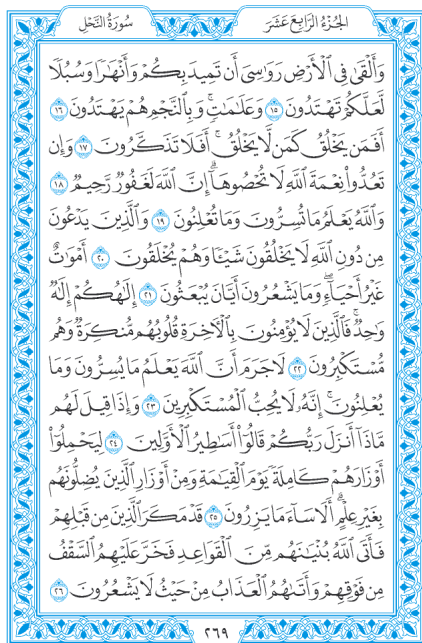 الجُزءُ الرَّابِعَ عَشَرَ
سُورَةُ النَّحْلِ
وَأَلْقَىٰ فِي ٱلْأَرْضِ رَوَٰسِىَ أَن تَمِيدَ بِكُمْ وَأَنْهَٰرًا وَسُبُلًا
لَّعَلَّكُمْ تَهْتَدُونَ ١٥ وَعَلَٰمَٰتٍۚ وَبِٱلنَّجْمِ هُمْ يَهْتَدُونَ ١٦
أَفَمَن يَخْلُقُ كَمَن لَّا يَخْلُقُۚ أَفَلَا تَذَكَّرُونَ ١٧ وَإِن
تَعُدُّوا۟ نِعْمَةَ ٱللَّهِ لَا تُحْصُوهَآۗ إِنَّ ٱللَّهَ لَغَفُورٌ رَّحِيمٌ ١٨
وَٱللَّهُ يَعْلَمُ مَا تُسِرُّونَ وَمَا تُعْلِنُونَ ١٩ وَٱلَّذِينَ يَدْعُونَ
مِن دُونِ ٱللَّهِ لَا يَخْلُقُونَ شَيْـًٔا وَهُمْ يُخْلَقُونَ ٢٠ أَمْوَٰتٌ
غَيْرُ أَحْيَآءٍۖ وَمَا يَشْعُرُونَ أَيَّانَ يُبْعَثُونَ ٢١ إِلَٰهُكُمْ إِلَٰهٌ
وَٰحِدٌۚ فَٱلَّذِينَ لَا يُؤْمِنُونَ بِٱلْءَاخِرَةِ قُلُوبُهُم مُّنكِرَةٌ وَهُم
مُّسْتَكْبِرُونَ ٢٢ لَا جَرَمَ أَنَّ ٱللَّهَ يَعْلَمُ مَا يُسِرُّونَ وَمَا
يُعْلِنُونَۚ إِنَّهُۥ لَا يُحِبُّ ٱلْمُسْتَكْبِرِينَ ٢٣ وَإِذَا قِيلَ لَهُم
مَّاذَآ أَنزَلَ رَبُّكُمْ قَالُوٓا۟ أَسَٰطِيرُ ٱلْأَوَّلِينَ ٢٤ لِيَحْمِلُوٓا۟
أَوْزَارَهُمْ كَامِلَةً يَوْمَ ٱلْقِيَٰمَةِ وَمِنْ أَوْزَارِ ٱلَّذِينَ يُضِلُّونَهُم
بِغَيْرِ عِلْمٍۗ أَلَا سَآءَ مَا يَزِرُونَ ٢٥ قَدْ مَكَرَ ٱلَّذِينَ مِن قَبْلِهِمْ
فَأَتَى ٱللَّهُ بُنْيَٰنَهُم مِّنَ ٱلْقَوَاعِدِ فَخَرَّ عَلَيْهِمُ ٱلسَّقْفُ
مِن فَوْقِهِمْ وَأَتَىٰهُمُ ٱلْعَذَابُ مِنْ حَيْثُ لَا يَشْعُرُونَ ٢٦
٢٦٩